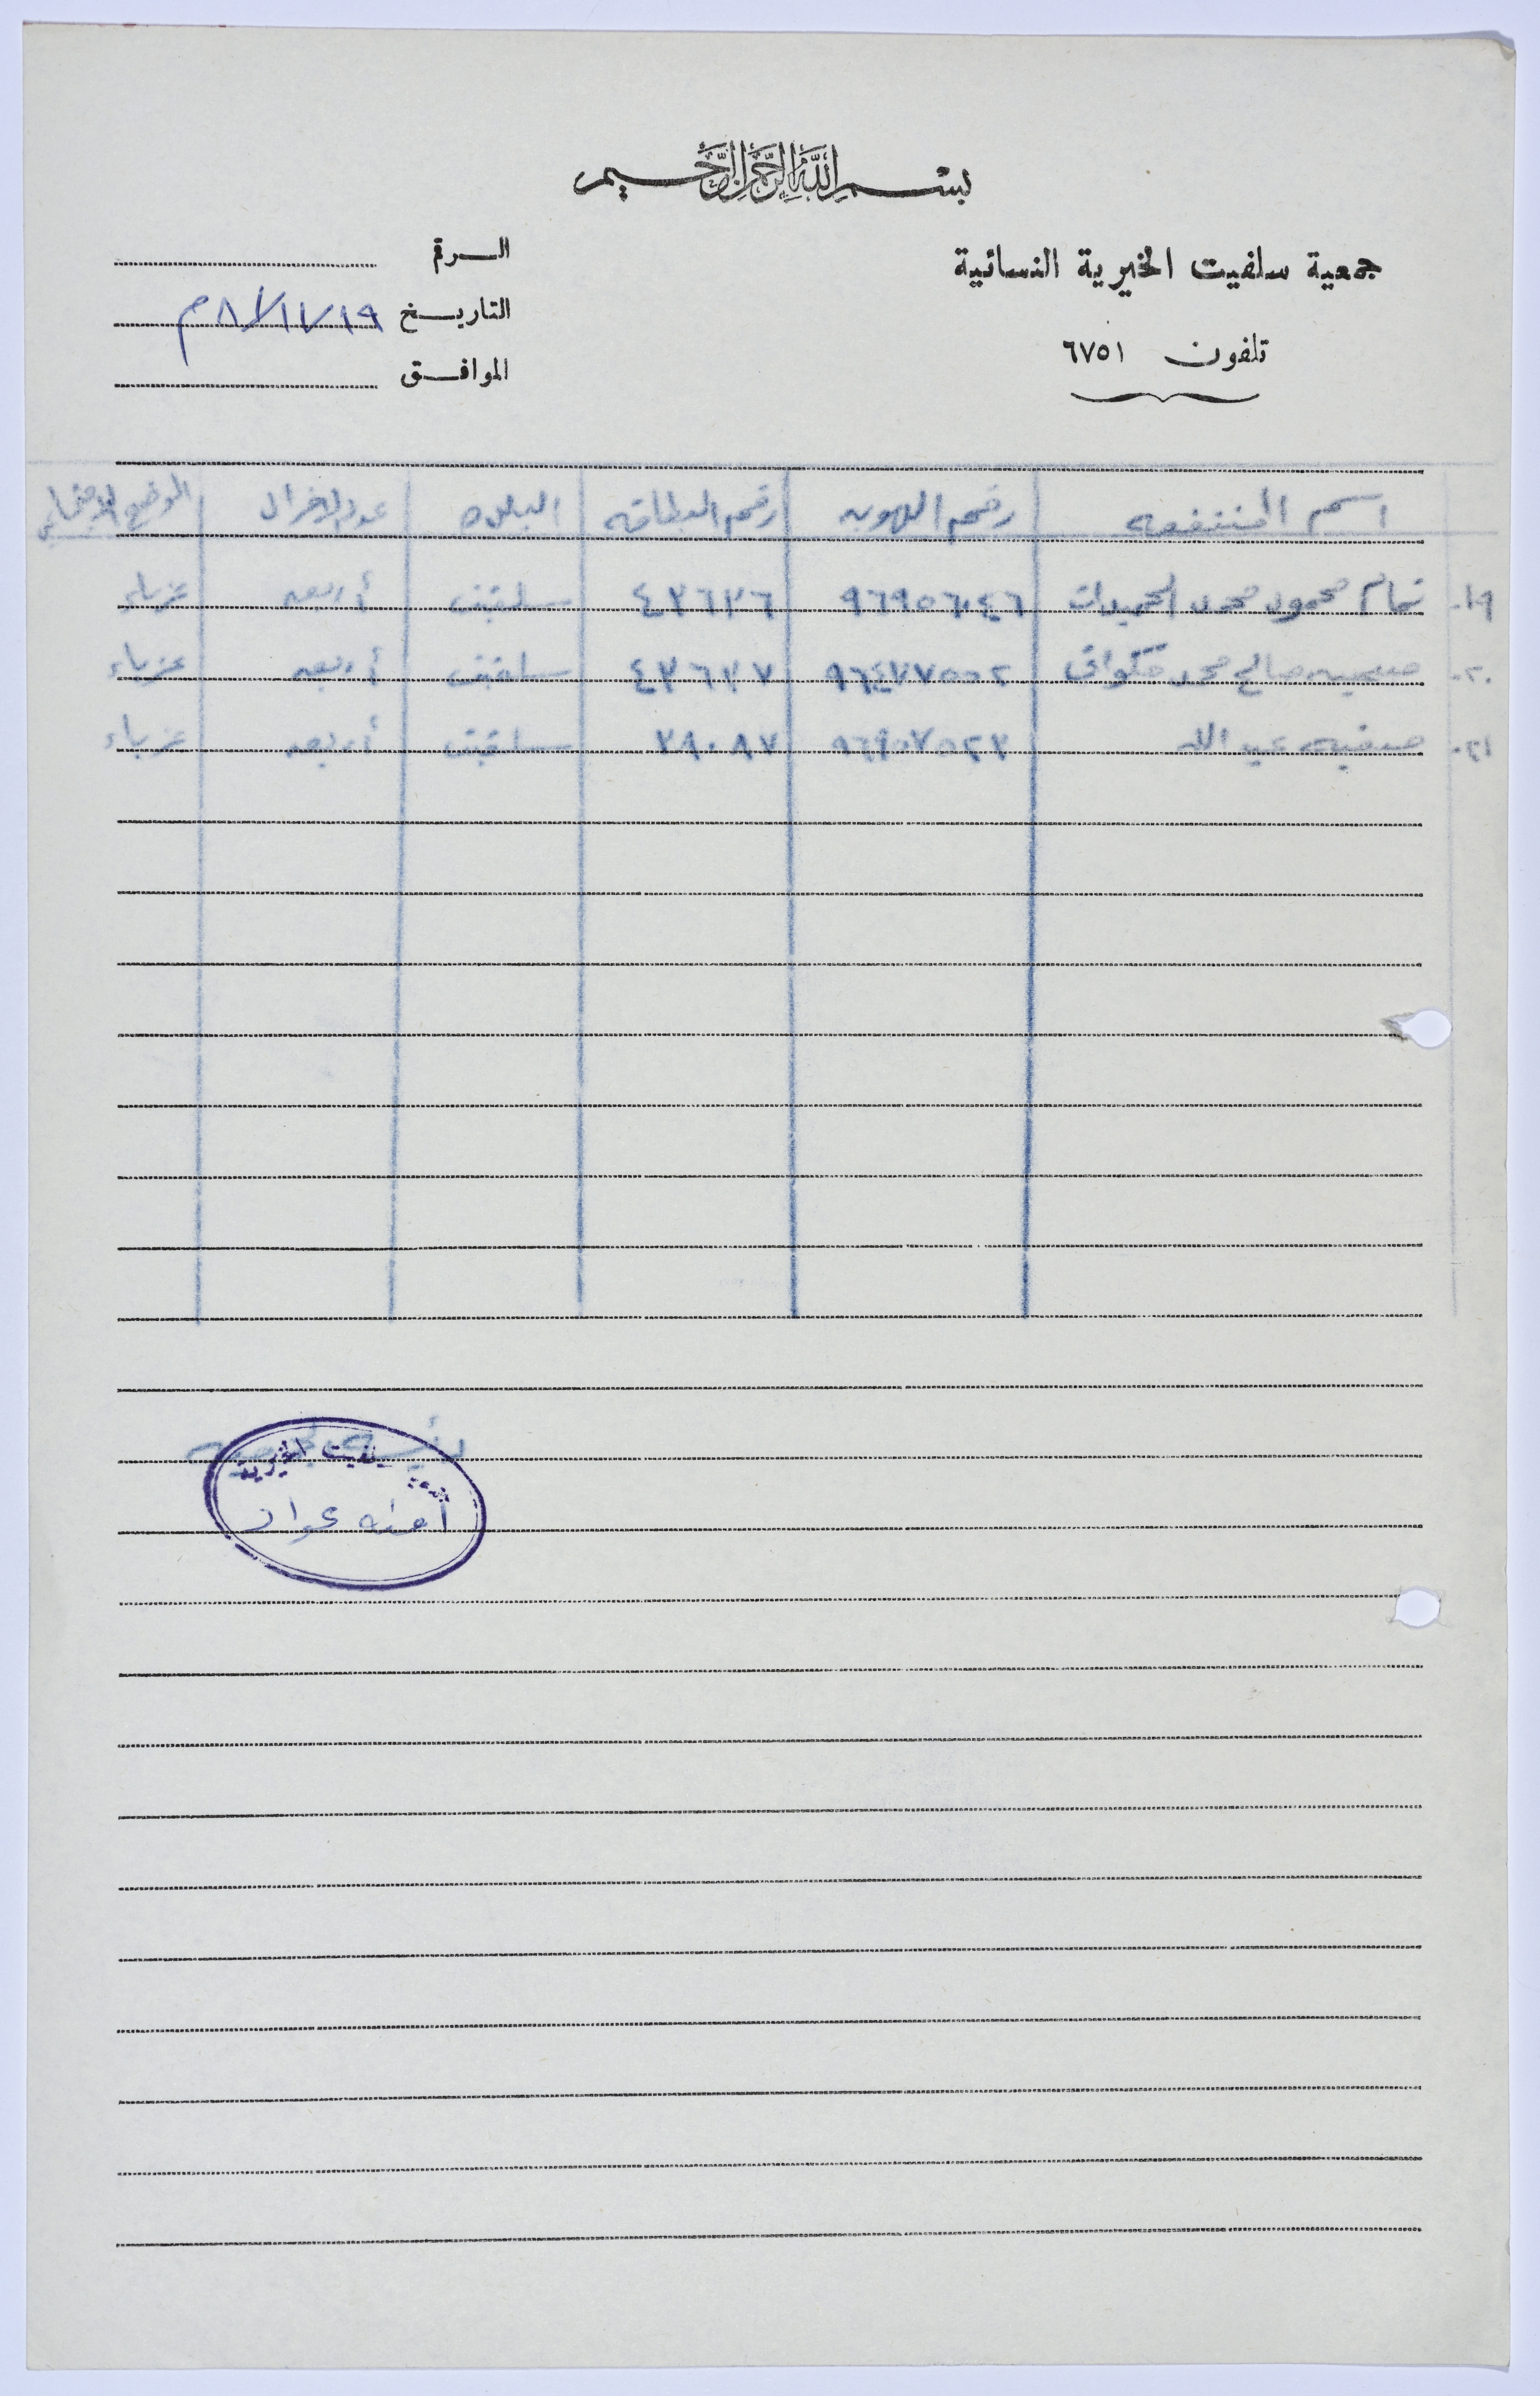 بسم الله الرحمن الرحيم
جمعية سلفيت الخيرية النسائية
تلفون ٦٧٥١
الرقم
التاريخ ١٩/١١/٨١م
الموافق
اسم المنتفعه رقم الهويه رقم البطاقه البلده عدد الافراد الوضع الاجتماعي
١٩. تمام محمود محمد ٩٦٩٥٦٠٤٦ ٤٣٦٣٦ سلفيت أربعه عزباء
٢٠. صبحيه صالح محمد ٩٦٤٧٧٥٥٢ ٤٣٦٣٧ سلفيت أربعه عزباء
٢١. صفيه عبد الله ٩٦٩٥٧٥٢٣ ٢٩٠٨٧ سلفيت أربعه عزباء
رئيسة الجمعيه
سلفيت الخيرية
آمنه عواد